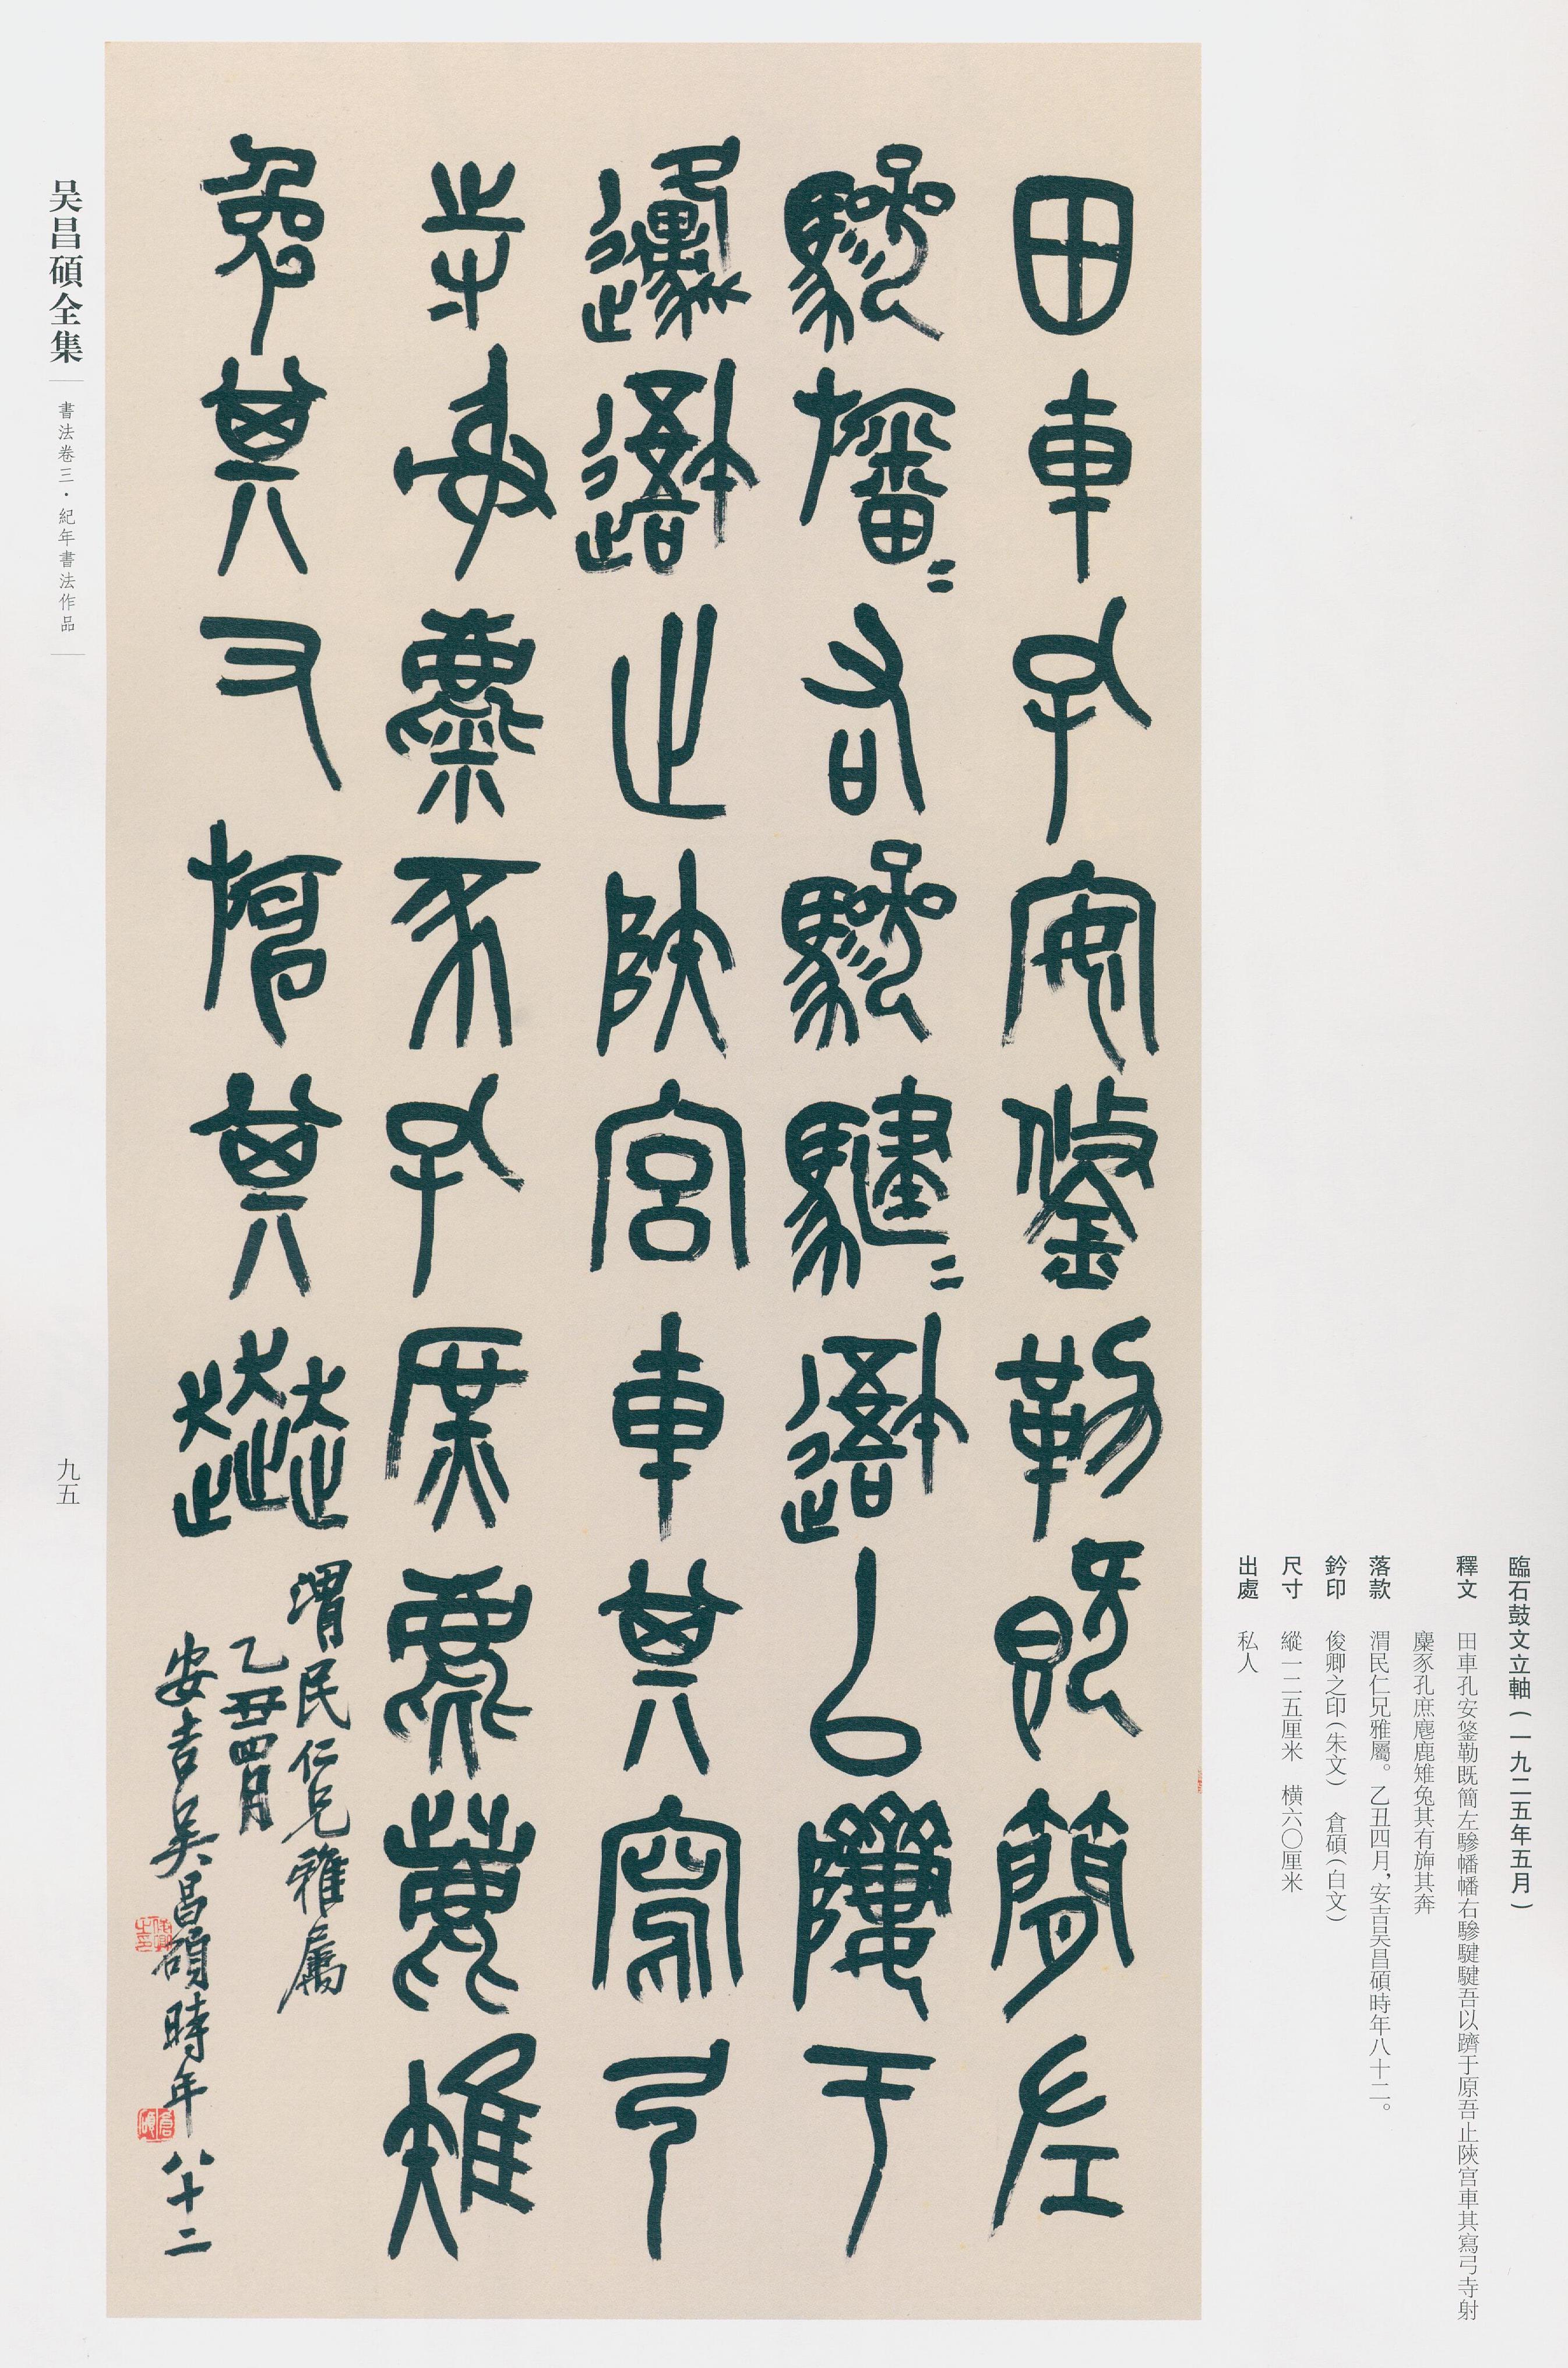 田車孔安鋚勒既簡左
驂旛〻右驂騝〻䢸以隮于
邍䢸止陝宮車其寫弓
寺射麋豕孔庶麀鹿雉
兔其又旃其趍
渭民仁兄雅屬
乙丑四月
安吉吴昌碩時年八十二
俊卿之印
倉碩
臨石鼓文立軸（一九二五年五月）
釋文 田車孔安鋚勒既簡左驂幡幡右驂騝騝吾以隮于原吾止陝宫車其寫弓寺射
麋豕孔庶麀鹿雉兔其有旃其奔
落款 渭民仁兄雅屬。乙丑四月，安吉吴昌碩時年八十二。
鈐印 俊卿之印（朱文） 倉碩（白文）
尺寸 縱一二五厘米 橫六〇厘米
出處 私人
吴昌碩全集
書法卷三·紀年書法作品
九五